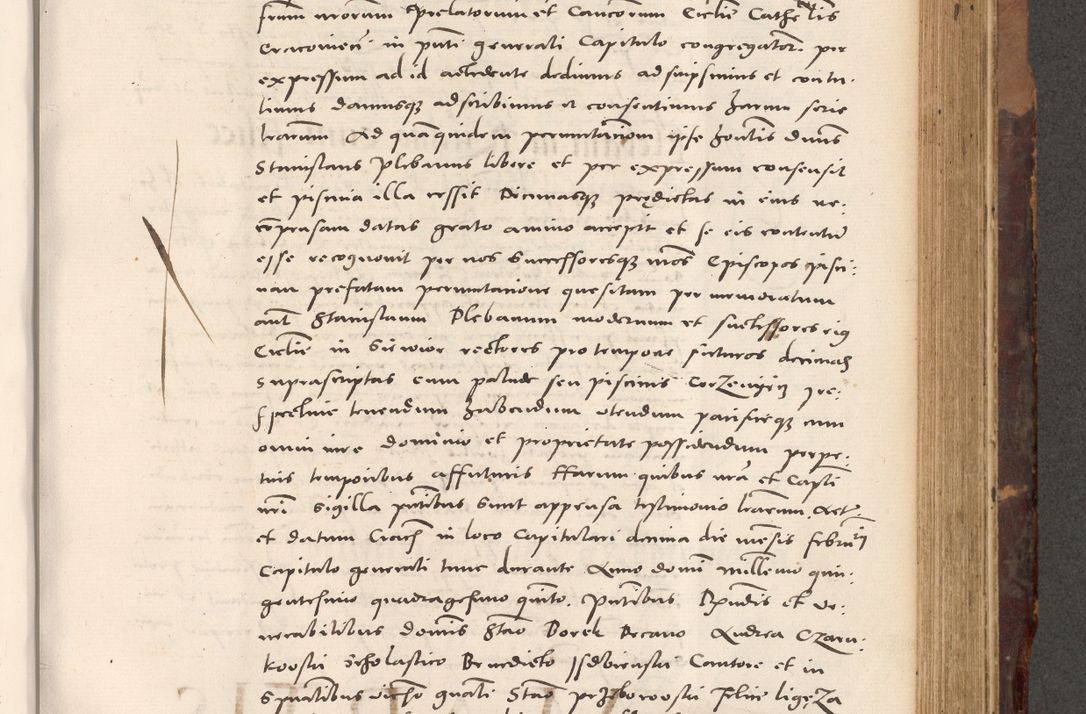 frum nrorum Prelatorum et Canconum Ecclie Cathelis
Cracovien in pnti generali Capitulo congregator. per
expressum ad id accedente dedimus adscripsimus et contu-
limus damusq adscribimus et consentimus harum serie
lrarum Ad quam quidem permutaconem ipse honlis dnus
Stanislaus Plebanus libere et per expressum consensit
et piscina illa cessit Decimasq predictas in eius re-
compensam datas grato animo accepit et se eis contentu
esse recognovit per nos Successoresq nros Episcopos pisci-
nam prefatam permutatione quesitam per memoratum
aut Stanislaum Plebanum modernum et successores eius
Ecclie in Siewior rectores pro tempore futuros decimas
suprascriptas cum palude seu piscinis Corzenyin re-
spective tenendum habendum utendum pacificeq cum
omni iure dominio et proprietate possidendum perpe-
tuis temporibus affuturis Harum quibus nra et Capli
nri sigilla pntibus sunt appensa testimonio lrarum. Act
et datum Crach in loco Capitulari decima die mensis februarii
Capitulo generali tunc durante Anno domi millemo quin-
gentesimo quadragesimo quinto. Pntibus Rxndis et ve-
nerabilibus domis Stao Borek Decano Andrea Czarn-
kowski Scholastico Benedicto Isdbienski Cantore et in
Spualibus vicario gnali Stao przeborowski Felice ligęza